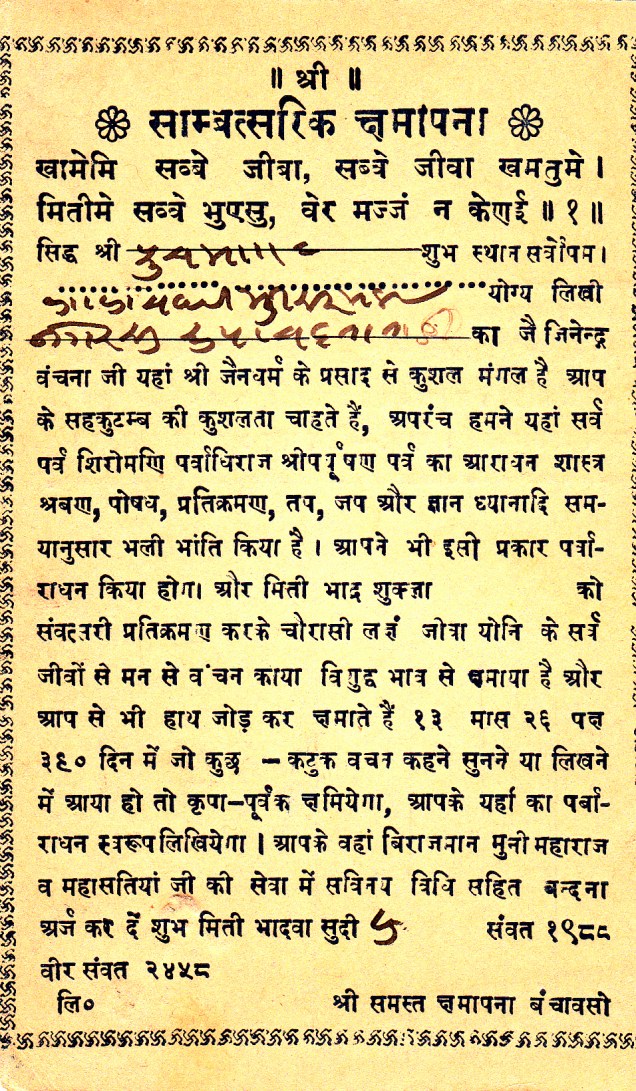 ॥ श्री ॥
साम्वत्सरिक क्षमापना
खामेमि सव्वे जीवा, सव्वे जीवा खमतुमे ।
मितीमे सव्वे भुएसु, वेर मज्जं न केणई ॥ १ ॥
सिद्ध श्री शुभ स्थान सर्वोपमा
योग्य लिखी
का जै जिनेन्द्र
वंचना जी यहां श्री जैनधर्म के प्रसाद से कुशल मंगल है आप
के सहकुटम्ब की कुशलता चाहते हैं, अपरंच हमने यहां सर्व
पर्व शिरोमणि पर्वाधिराज श्रीपर्यूषण पर्व का आराधन शास्त्र
श्रवण, पोषध, प्रतिक्रमण, तप, जप और ज्ञान ध्यानादि सम-
यानुसार भली भांति किया है । आपने भी इसी प्रकार पर्वा-
राधन किया होगा और मिती भाद्र शुक्ला को
संवत्सरी प्रतिक्रमण करके चौरासी लक्ष जीवा योनि के सर्व
जीवों से मन से वंचन काया विशुद्ध भाव से क्षमाया है और
आप से भी हाथ जोड़ कर क्षमाते हैं १३ मास २६ पक्ष
३९० दिन में जो कुछ – कटुक वचन कहने सुनने या लिखने
में आया हो तो कृपा-पूर्वक क्षमियेगा, आपके यहां का पर्वा-
राधन स्वरूप लिखियेगा । आपके वहां बिराजमान मुनी महाराज
व महासतियां जी की सेवा में सविनय विधि सहित बन्दना
अर्ज कर दें शुभ मिती भादवा सुदी ५ संवत १९८८
वीर संवत २४५८
लि० श्री समस्त क्षमापना बंचावसो